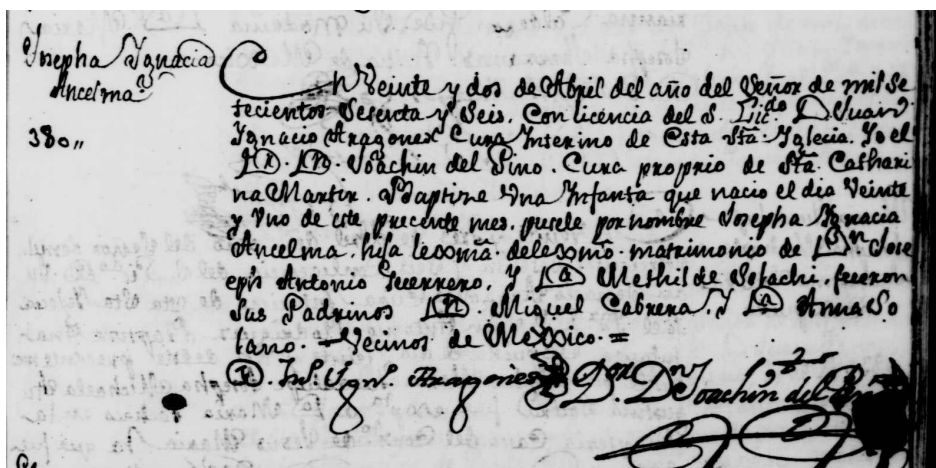 Josepha Ygnacia
Ancelma
380,,
En Veinte y dos de Abril del año del Señor de mil se
tecientos Sesenta y Seis. Con licencia del S. Lic.do D. Juan
Ygnacio Aragones Cura Interino de Esta Sta. Yglesia. Yo el
D.r D.n Joachin del Pino. Cura proprio de Sta. Cathari
na Martir. Baptize Vna Infanta que nacio el dia Veinte
y Vno de este precente mes. pusele por nombre Josepha Ygnacia
Ancelma. hija lexma. delexmo. matrimonio de D.n Jose
eph Antonio Guerrero. Y D.a Methilde Sofachi. fueron
Sus Padrinos D.n Miguel Cabrera. Y D.a Anna So
lano. Vecinos de Mexico. =
D. Jn. Ygn. Aragones
D.or D.n Joachin del Pino